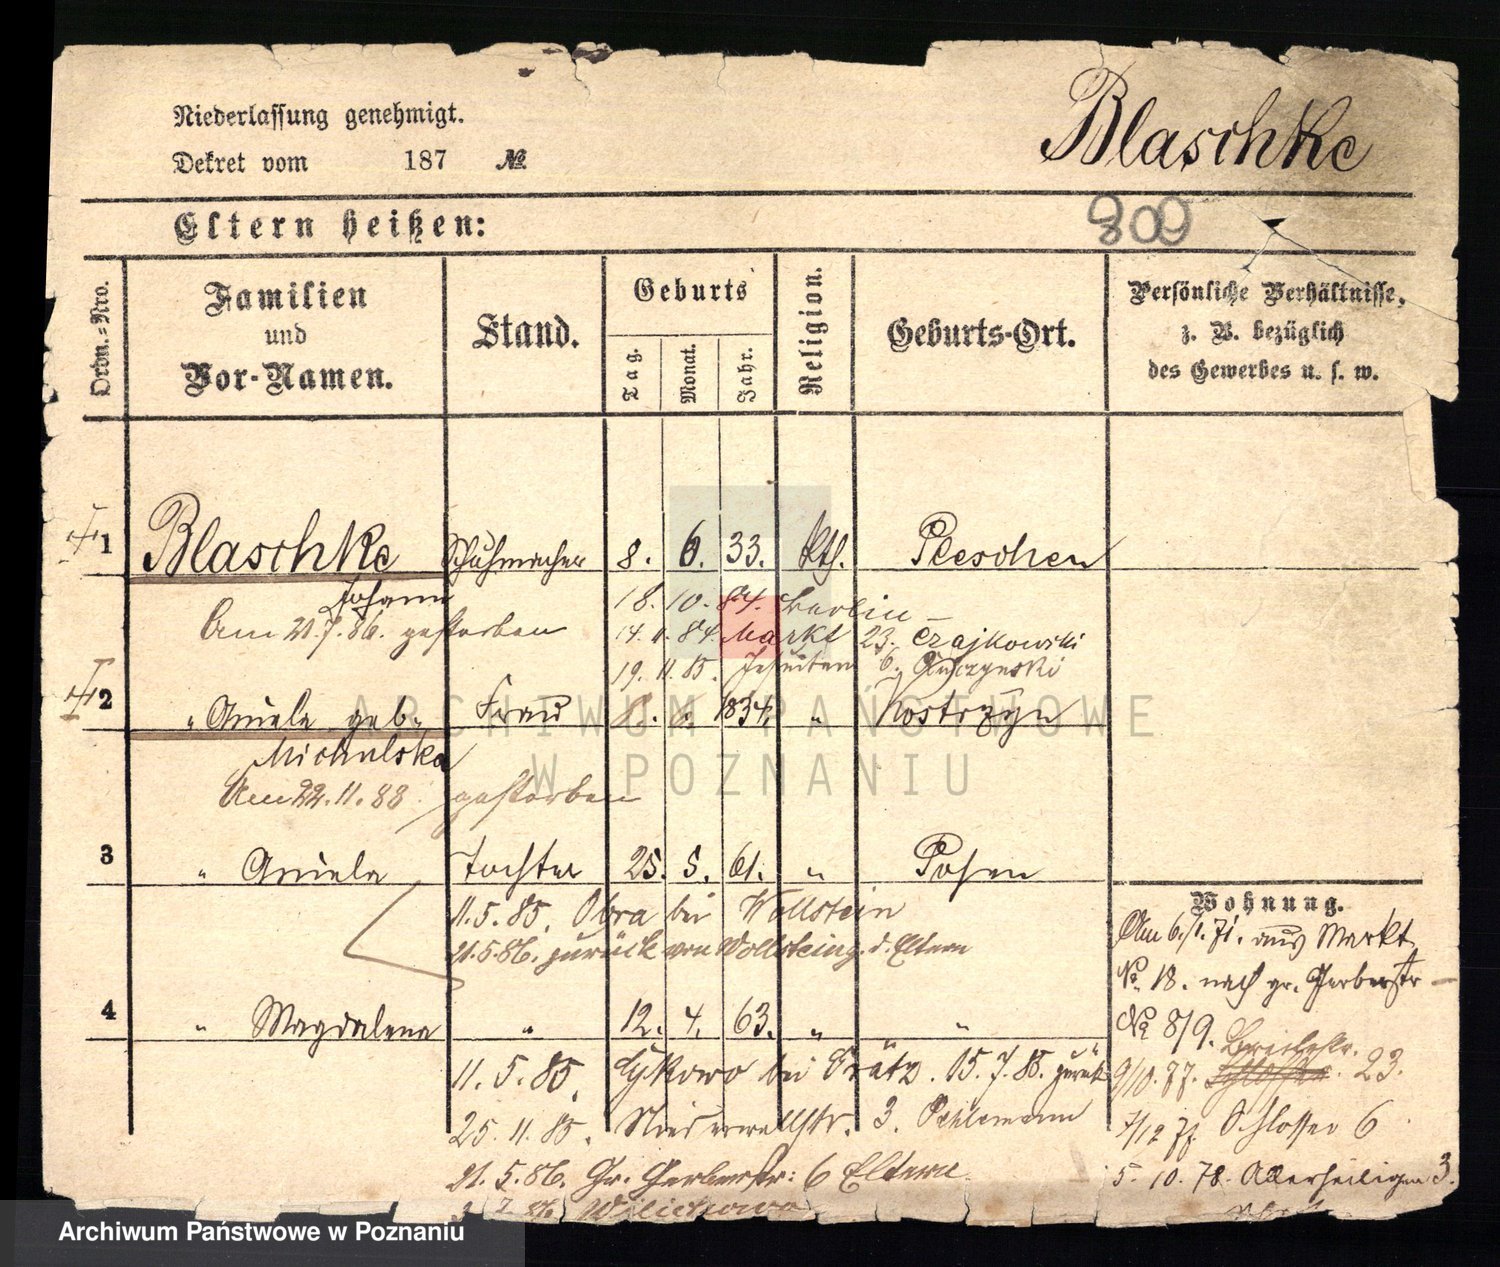 Niederlassung genehmigt.
Dekret vom 187 №
Blaschke
Eltern heißen:
809
Ordn.=Nro.
Familien
und
Vor-Namen.
Stand.
Geburts
Tag.
Monat.
Jahr.
Religion.
Geburts-Ort.
Persönliche Verhältnisse,
z. B. bezüglich
des Gewerbes u. s. w.
1 Blaschke Schuhmacher 8. 6. 33. kth. Pleschen
Johann
18. 10. 84. Berlin
Am 21.7.86. gestorben
14. 11. 84. Markt 23. Czajkowski
19. 11. 85. Jesuiten 6.
2 " Aniela geb. Frau 1834. " Kostrzyn
Michalska
Am 22.11.88 gestorben
3 " Aniela Tochter 25. 5. 61. " Posen
11.5.85. Obra bei Wollstein
21.5.86. zurück von Wollstein z. d. Eltern
4 " Magdalena " 12. 4. 63. " "
11. 5. 85. bei Grätz. 15. 7. 85. zurück
25. 11. 85. Niederwallstr. 3. Pehlemann
21. 5. 86. Gr. Gerberstr: 6 Eltern
Wohnung.
Am 6./1. 71. aus Markt
No. 18. nach gr. Gerberstr
No 8/9. Breitestr.
9/10. 77. Schlosser. 23.
7/12 77 Schlosser 6
5. 10. 78. Allerheiligen 3.
ARCHIWUM PAŃSTWOWE
W POZNANIU
Archiwum Państwowe w Poznaniu